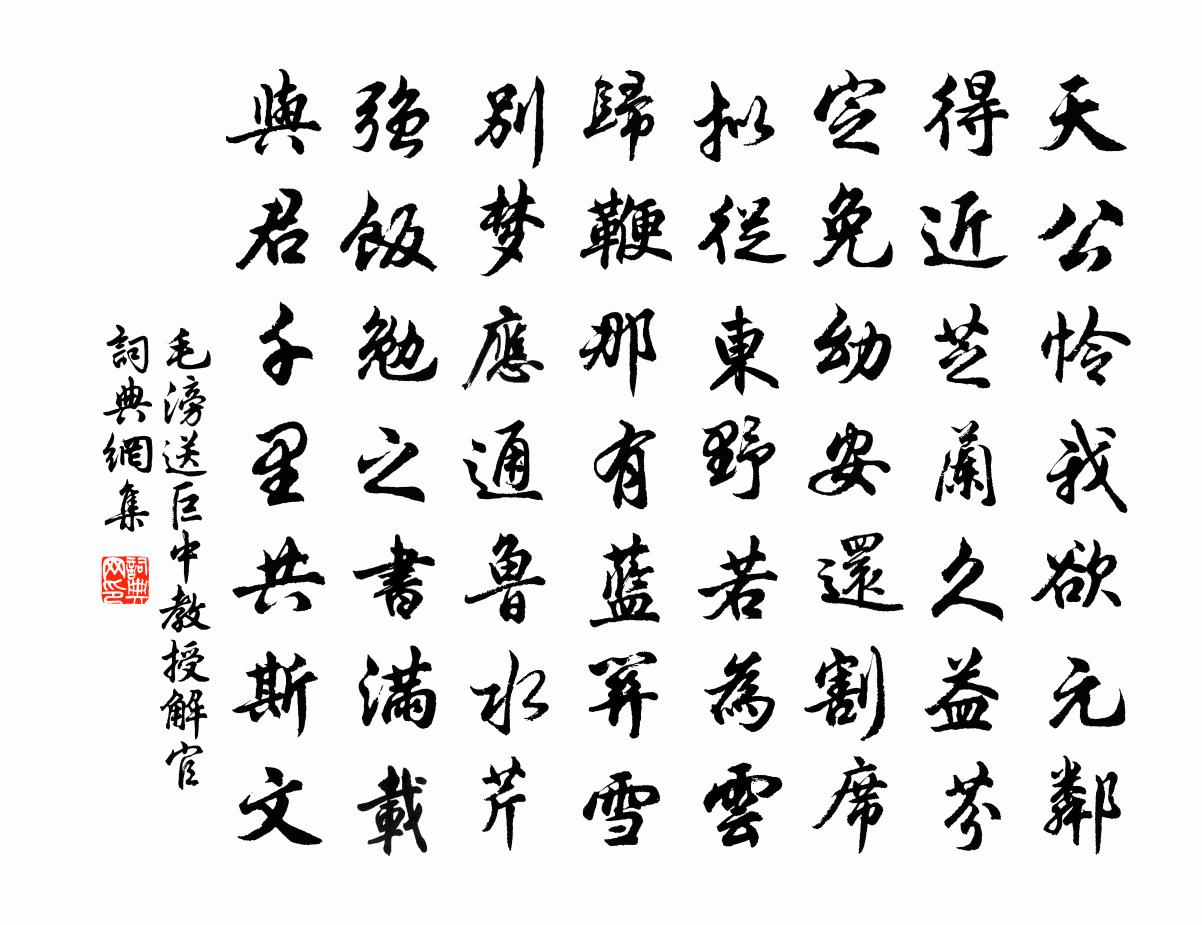 天公怜我欲元鄰
得近芝蘭久益芬
定免幼安還割席
拟從東野若為雲
歸鞭那有藍笄雪
別梦應通鲁水芹
强飯勉之書滿載
與君千里共斯文
毛滂送巨中教授解官
詞典網集
詞典网印